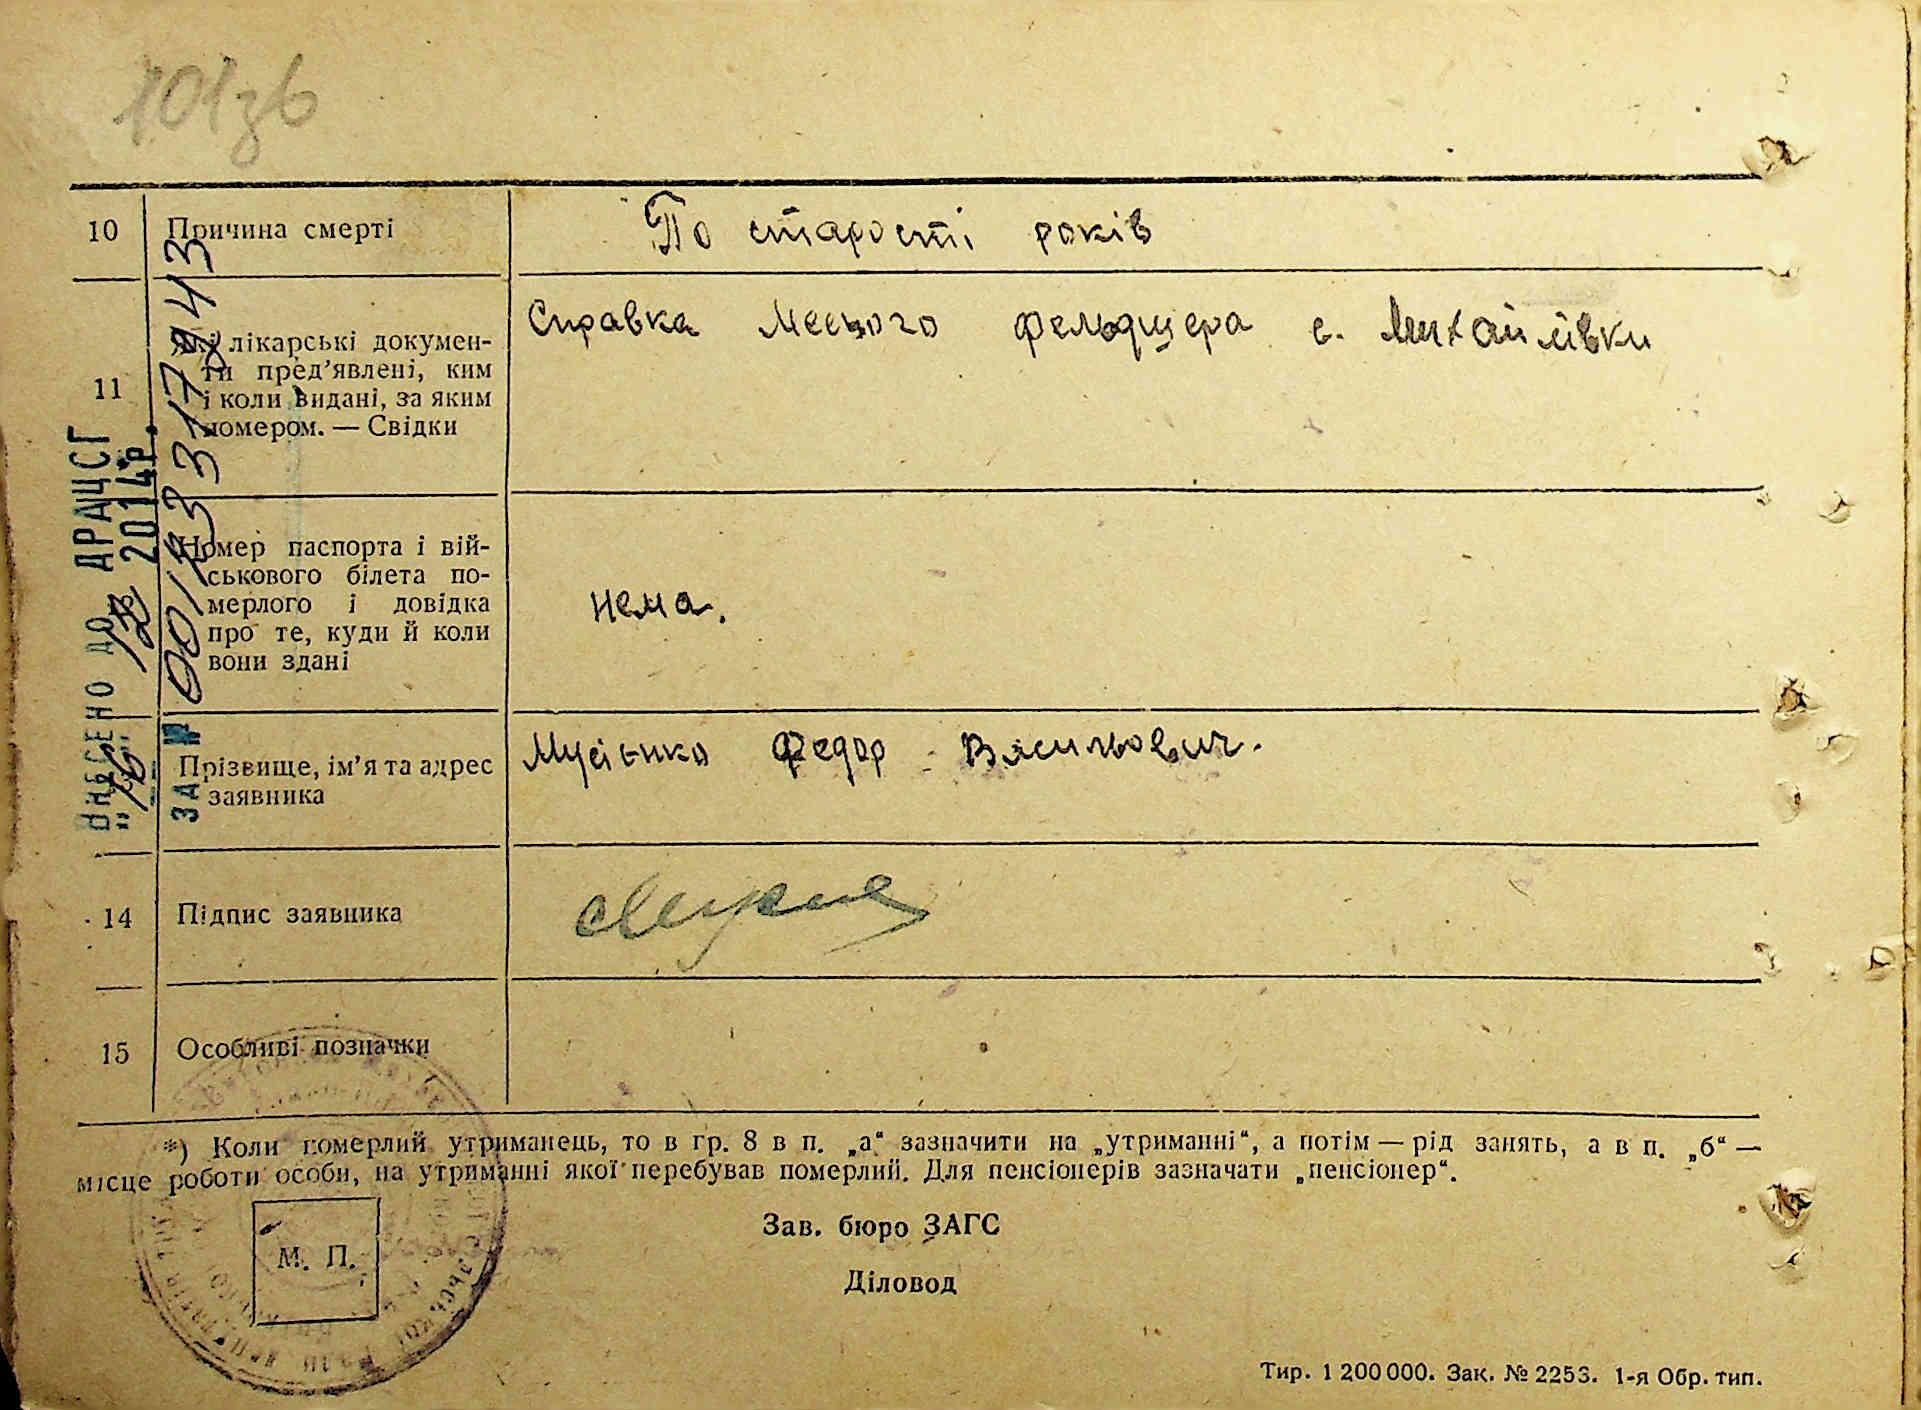 101зв
10 Причина смерті По старости років
11 Які лікарські докумен-
ти пред’явлені, ким
і коли видані, за яким
номером. — Свідки
Справка фельдшера с. Михайлівки
Номер паспорта і вій-
ськового білета по-
мерлого і довідка
про те, куди й коли
вони здані
нема.
Прізвище, ім’я та адрес
заявника
Мусієнко Федор Васильович.
14 Підпис заявника
15 Особливі позначки
ВНЕСЕНО ДО ДРАЦСГ
"16" 12 2014р.
ЗА №
*) Коли померлий утриманець, то в гр. 8 в п. „а“ зазначити на „утриманні“, а потім — рід занять, а в п. „б“ —
місце роботи особи, на утриманні якої перебував померлий. Для пенсіонерів зазначати „пенсіонер“.
Зав. бюро ЗАГС
М. П.
Діловод
Тир. 1 200 000. Зак. № 2253. 1-я Обр. тип.